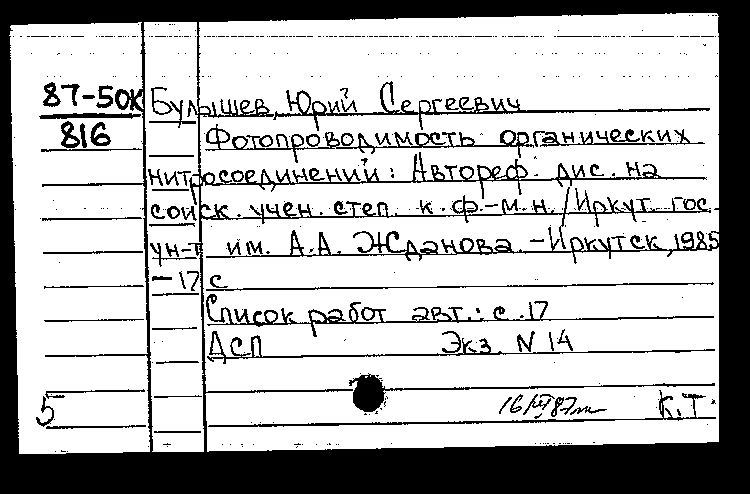 87-50К Булышев, Юрий Сергеевич
816 Фотопроводимость органических
нитросоединений: Автореф. дис. на
соиск. учен. степ. к.ф.-м.н. /Иркут. гос.
ун-т им. А.А. Жданова. -Иркутск, 1985
- 17 с
Список работ авт.: с. 17
ДСП Экз. N 14
5 К.Т.